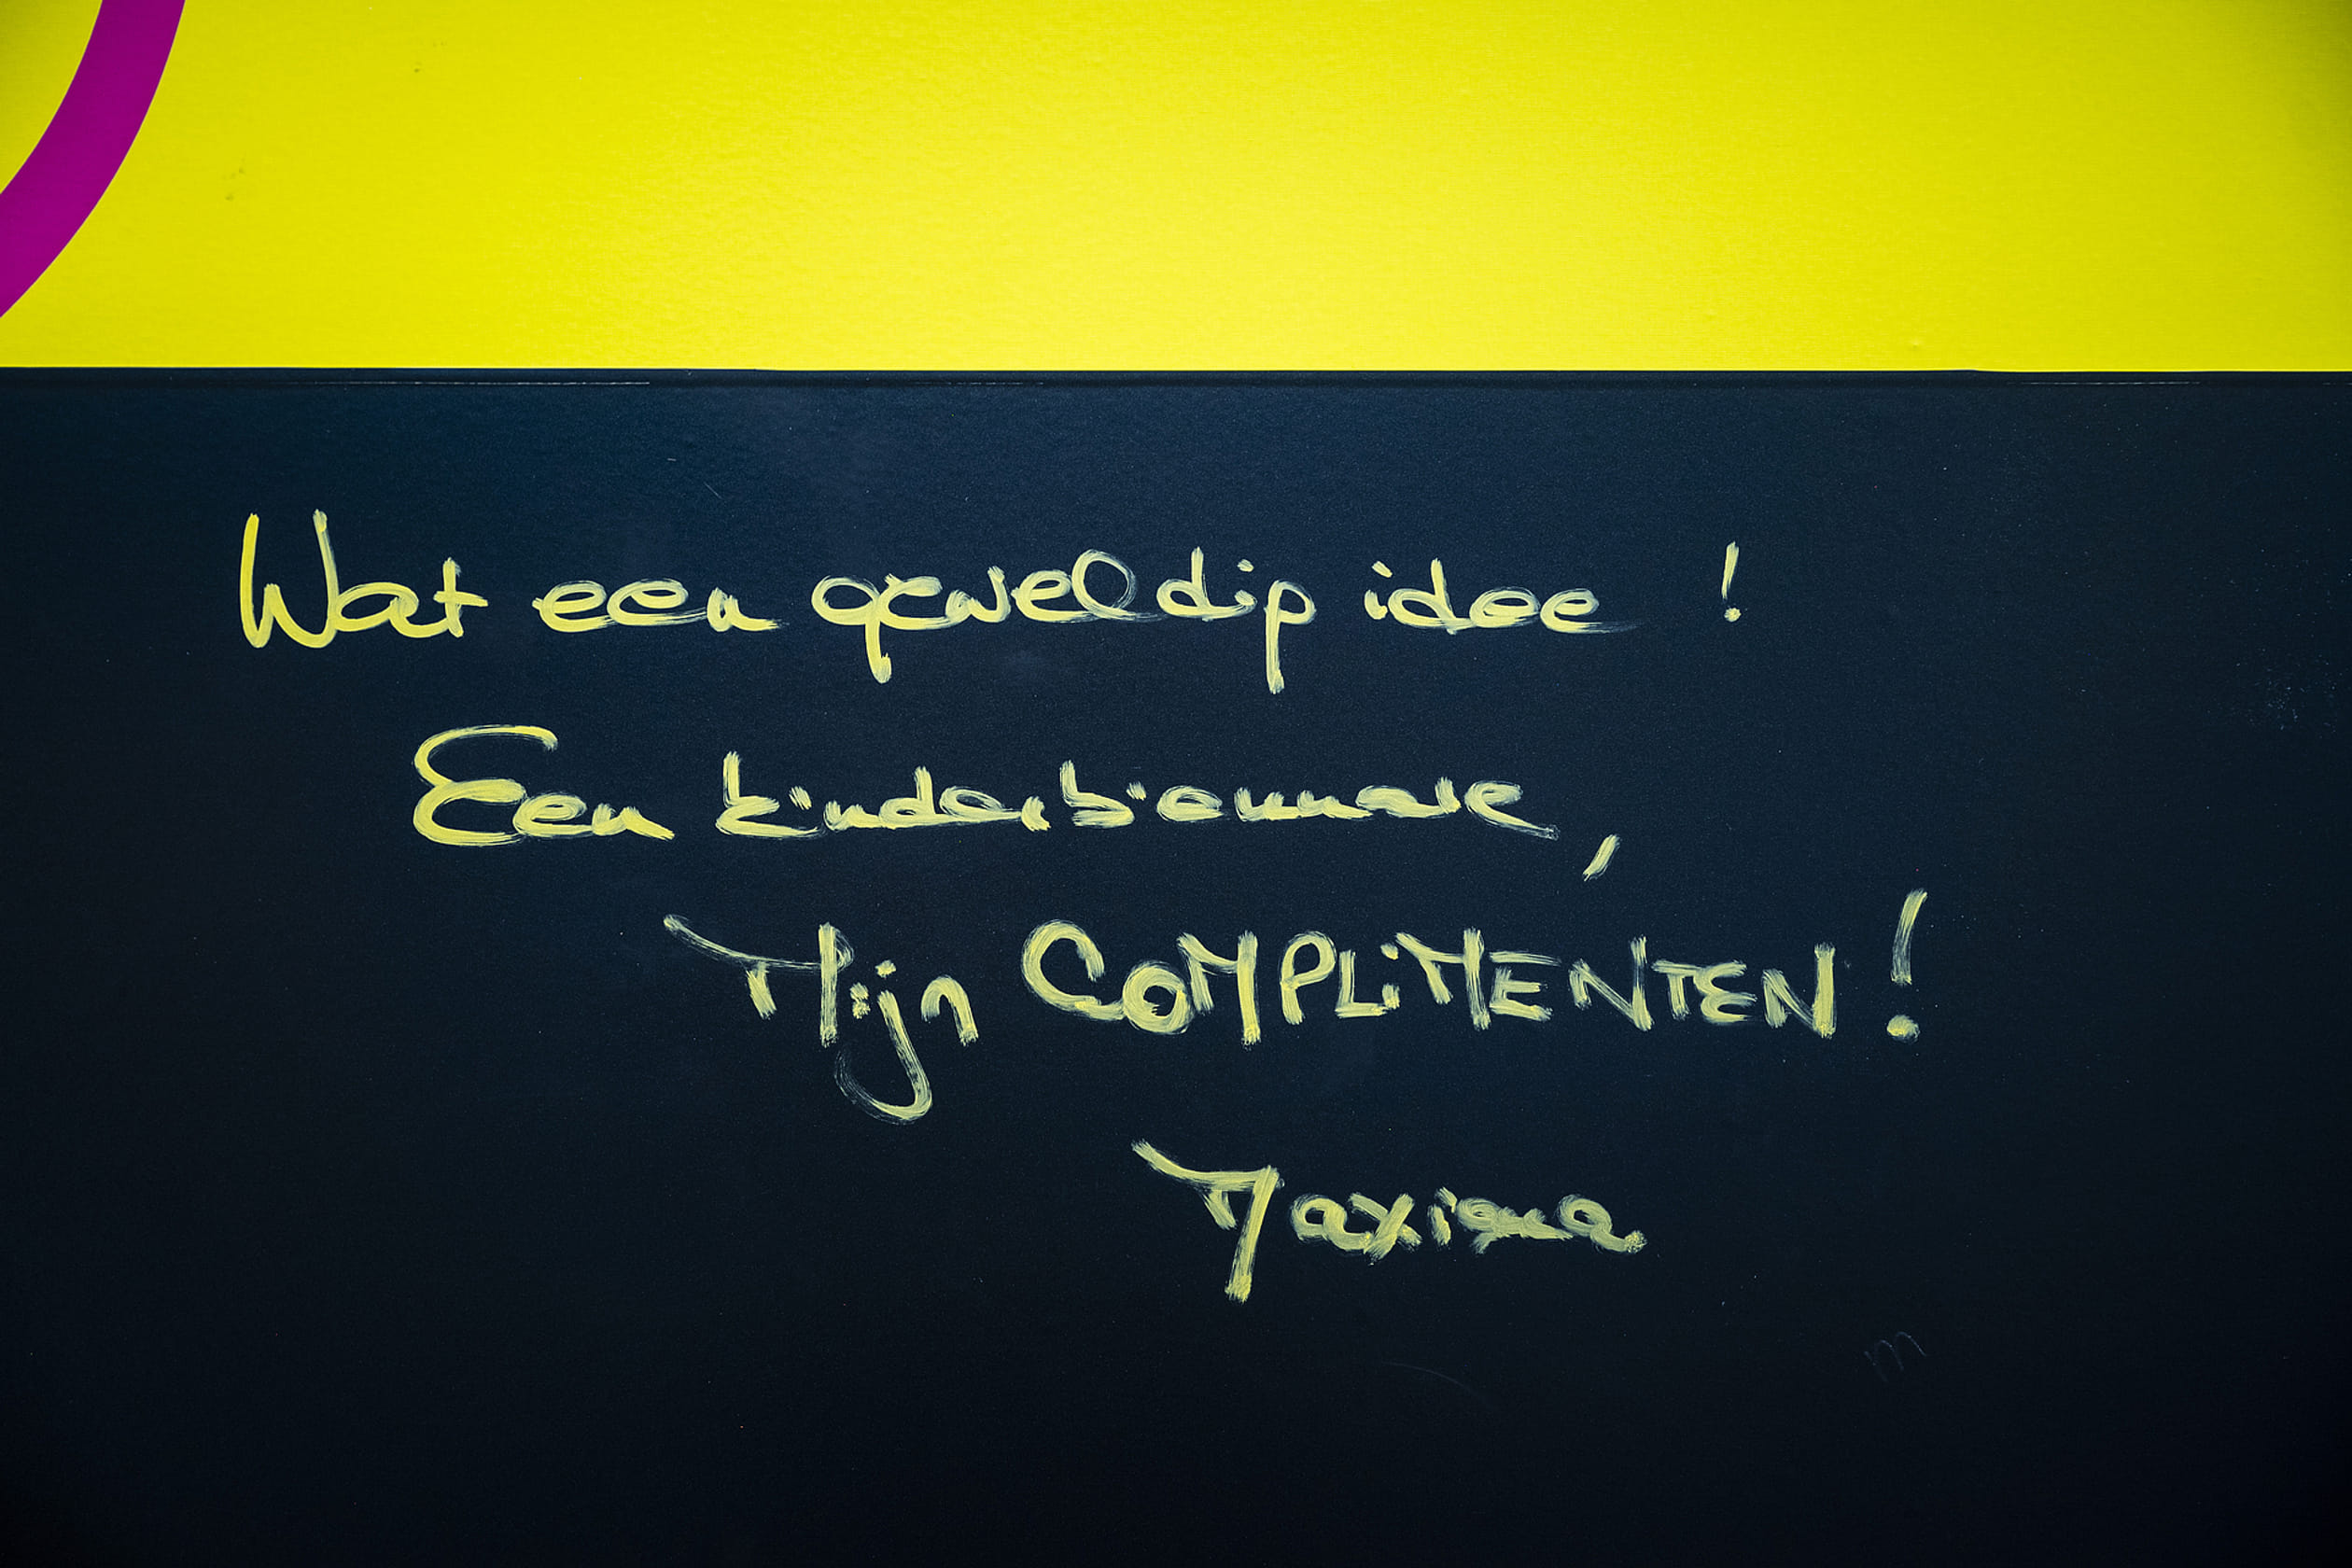 Wat een geweldig idee !
Een kinderbiennale,
Mijn COMPLiMENTEN!
Maxima
m